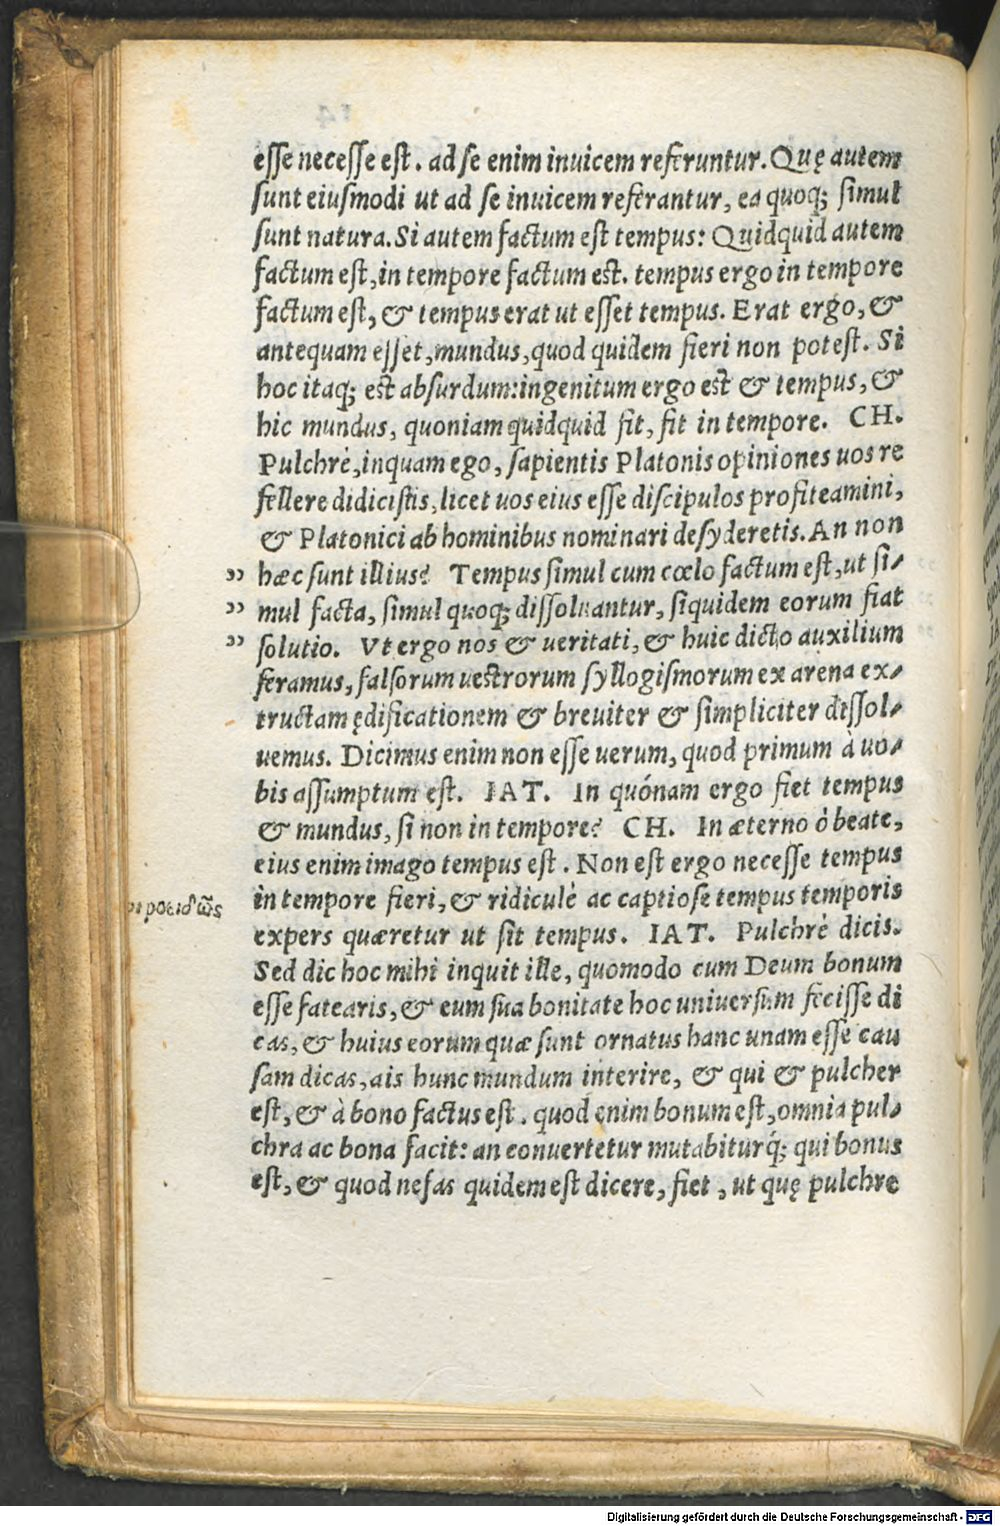 esse necesse est. ad se enim inuicem referuntur. Quę autem
sunt eiusmodi ut ad se inuicem referantur, ea quoq; simul
sunt natura. Si autem factum est tempus: Quidquid autem
factum est, in tempore factum est. tempus ergo in tempore
factum est, & tempus erat ut esset tempus. Erat ergo, &
antequam esset, mundus, quod quidem fieri non potest. Si
hoc itaq; est absurdum: ingenitum ergo est & tempus, &
hic mundus, quoniam quidquid fit, fit in tempore. CH.
Pulchrè, inquam ego, sapientis Platonis opiniones uos re
fellere didicistis, licet uos eius esse discipulos profiteamini,
& Platonici ab hominibus nominari desyderetis. An non
" hæc sunt illius? Tempus simul cum cœlo factum est, ut si-
" mul facta, simul quoq; dissoluantur, siquidem eorum fiat
" solutio. Vt ergo nos & ueritati, & huic dicto auxilium
feramus, falsorum uestrorum syllogismorum ex arena ex-
tructam ędificationem & breuiter & simpliciter dissol-
uemus. Dicimus enim non esse uerum, quod primum à uo-
bis assumptum est. IAT. In quónam ergo fiet tempus
& mundus, si non in tempore? CH. In æterno ò beate,
eius enim imago tempus est. Non est ergo necesse tempus
in tempore fieri, & ridiculè ac captiose tempus temporis
expers quæretur ut sit tempus. IAT. Pulchrè dicis.
Sed dic hoc mihi inquit ille, quomodo cum Deum bonum
esse fatearis, & eum sua bonitate hoc uniuersum fecisse di
cas, & huius eorum quæ sunt ornatus hanc unam esse cau
sam dicas, ais hunc mundum interire, & qui & pulcher
est, & à bono factus est. quod enim bonum est, omnia pul-
chra ac bona facit: an conuertetur mutabiturq́; qui bonus
est, & quod nefas quidem est dicere, fiet, ut quę pulchre
Digitalisierung gefördert durch die Deutsche Forschungsgemeinschaft - DFG